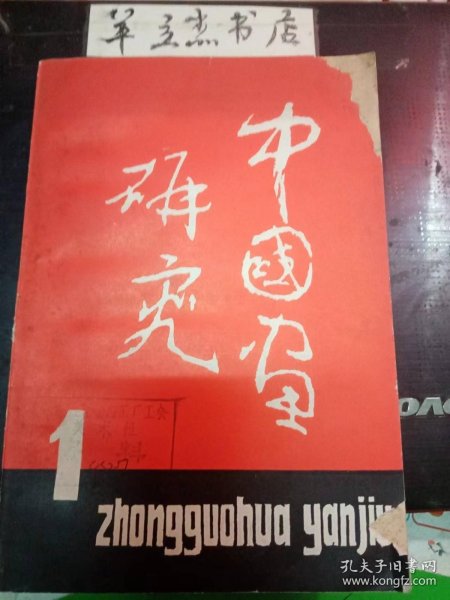 羊立杰书店
中國画
研究
1
zhongguohua yanjiu
孔夫子旧书网
www.kongfz.com